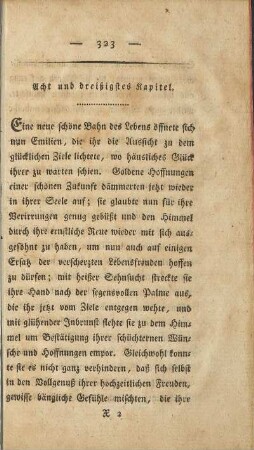 — 323 —
Acht und dreißigstes Kapitel.
Eine neue schöne Bahn des Lebens öffnete sich
nun Emilien, die ihr die Aussicht zu dem
glücklichen Ziele lichtete, wo häusliches Glück
ihrer zu warten schien. Goldene Hoffnungen
einer schönen Zukunft dämmerten jetzt wieder
in ihrer Seele auf; sie glaubte nun für ihre
Verirrungen genug gebüßt und den Himmel
durch ihre ernstliche Reue wieder mit sich aus-
gesöhnt zu haben, um nun auch auf einigen
Ersatz der verscherzten Lebensfreuden hoffen
zu dürfen; mit heißer Sehnsucht streckte sie
ihre Hand nach der segensvollen Palme aus,
die ihr jetzt vom Ziele entgegen wehte, und
mit glühender Inbrunst flehte sie zu dem Him-
mel um Bestätigung ihrer schüchternen Wün-
sche und Hoffnungen empor. Gleichwohl konn-
te sie es nicht ganz verhindern, daß sich selbst
in den Vollgenuß ihrer hochzeitlichen Freuden,
gewisse bängliche Gefühle mischten, die ihre
X 2